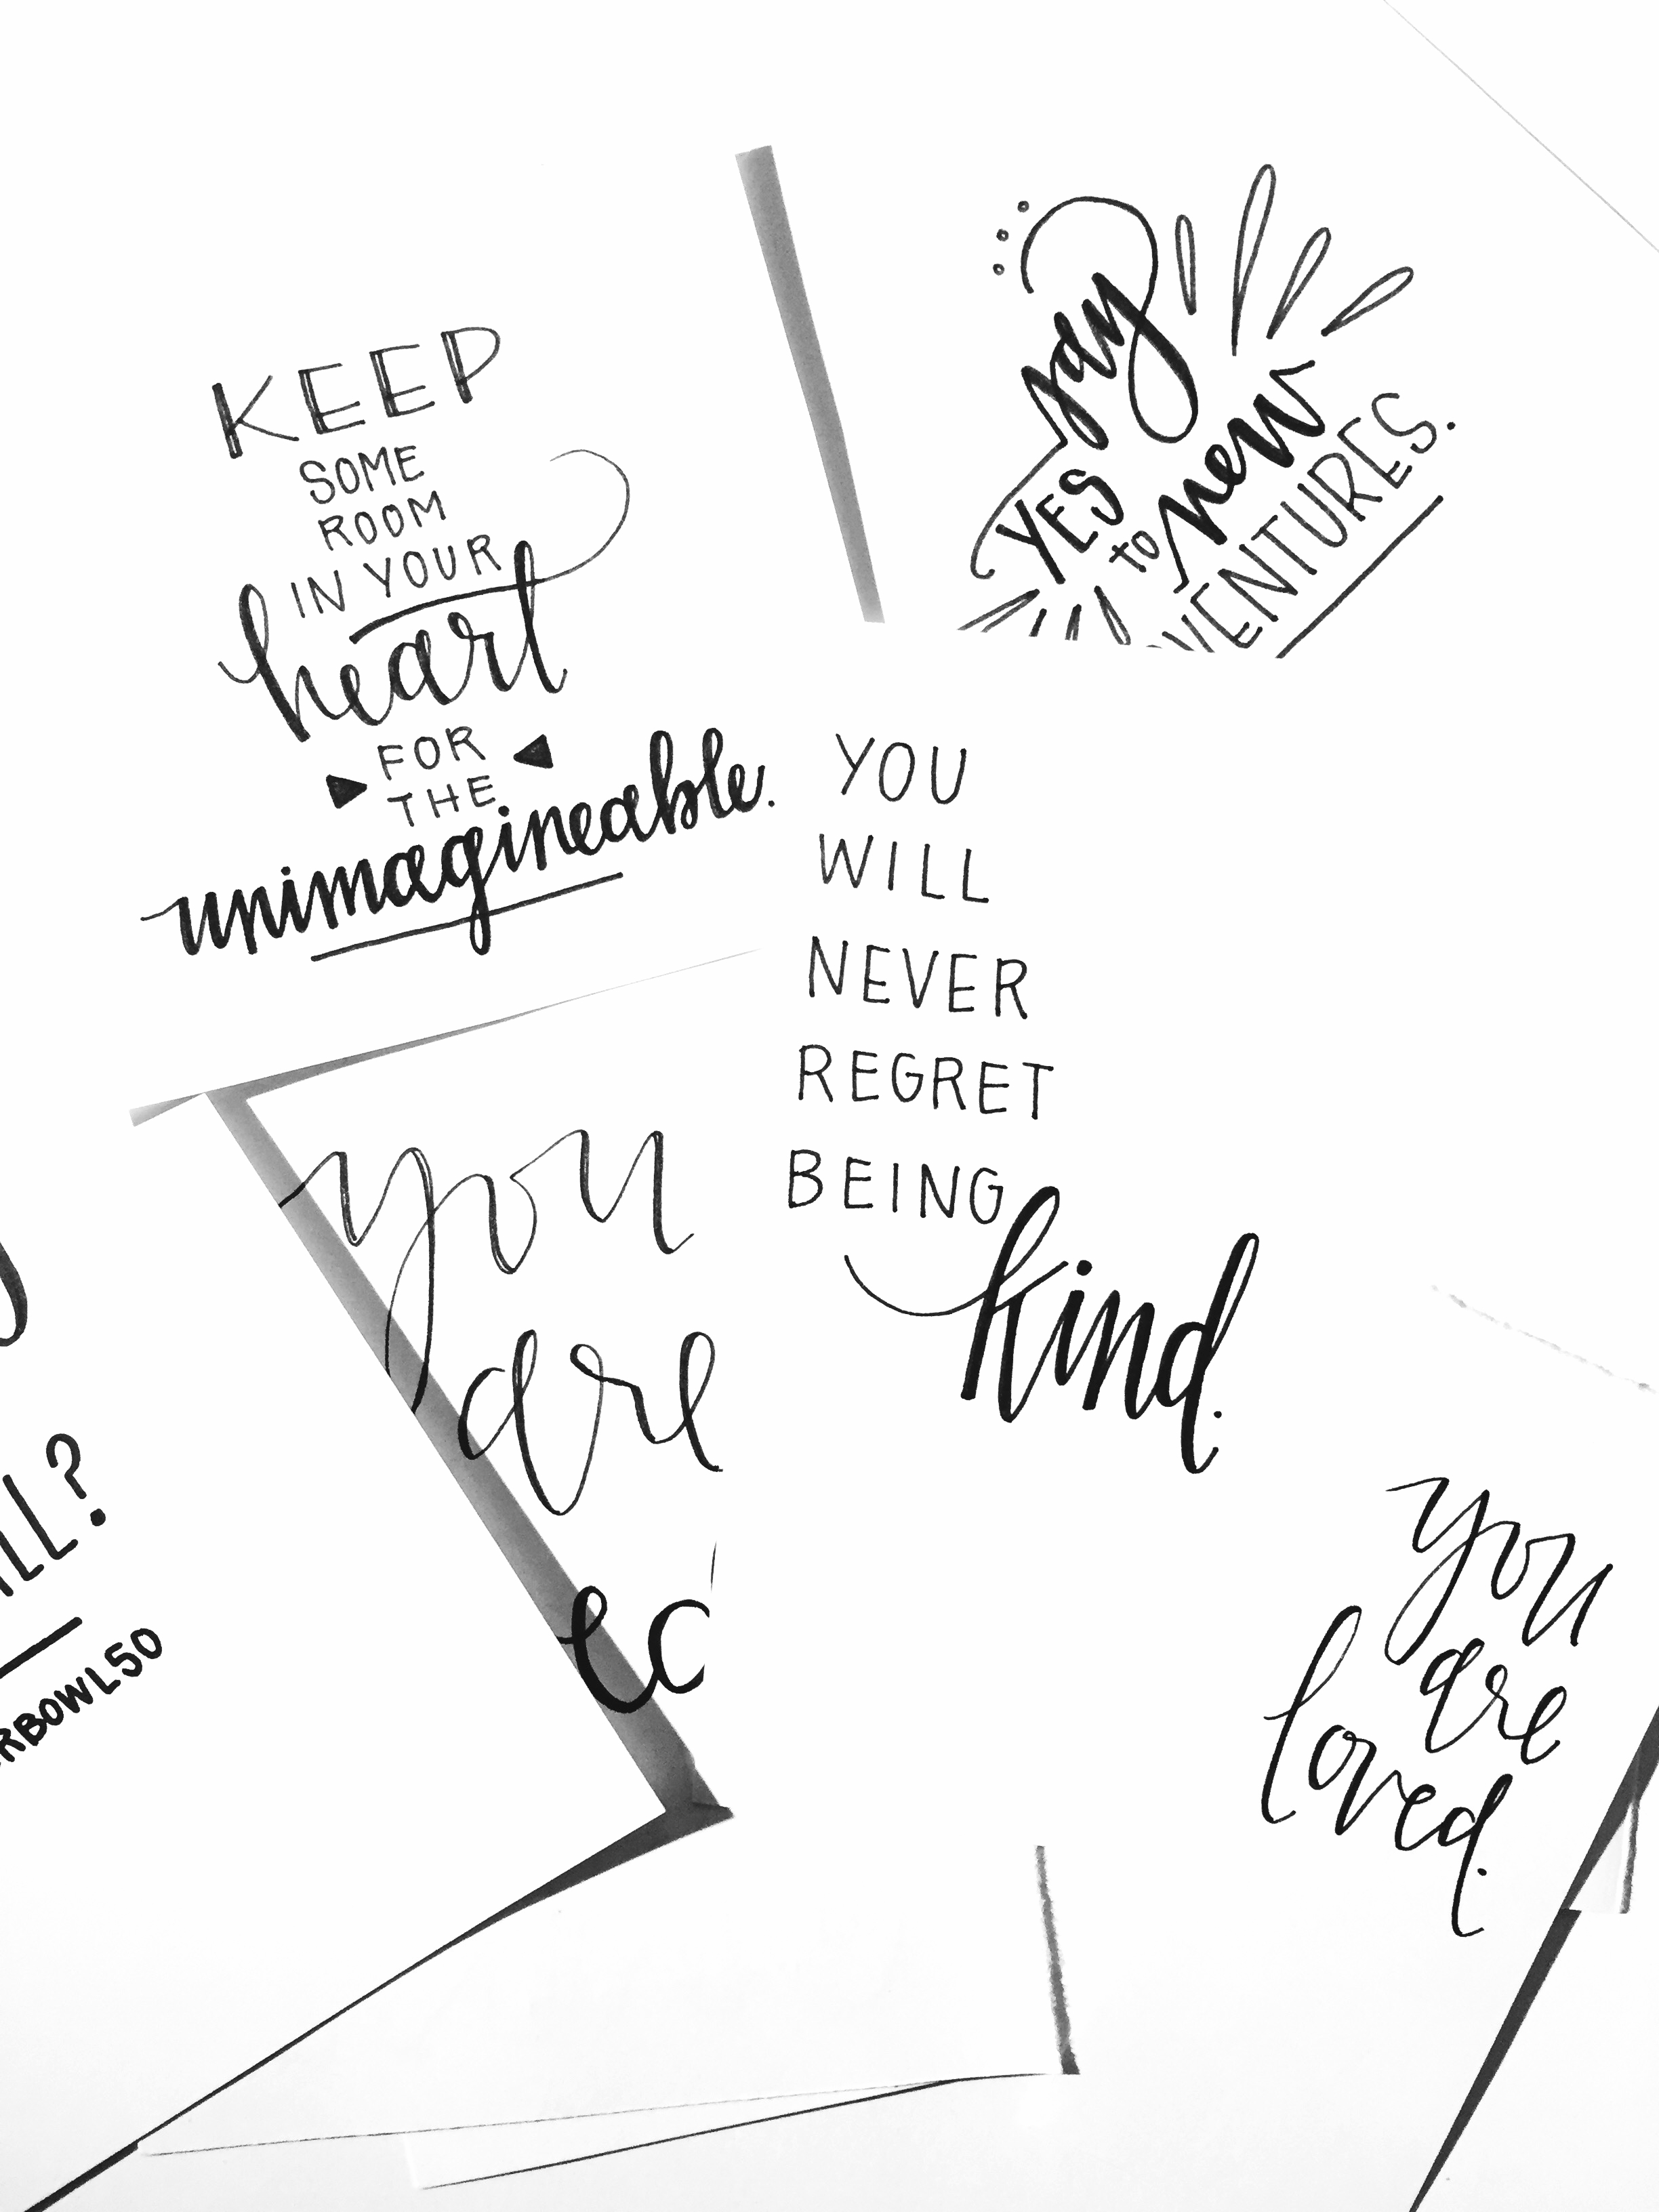 KEEP
SOME
ROOM
IN YOUR
heart
FOR
THE
unimagineable.
say
YES
to
new
VENTURES.
YOU
WILL
NEVER
REGRET
BEING
kind.
you
are
ILL?
RBOWL50
you
are
loved.